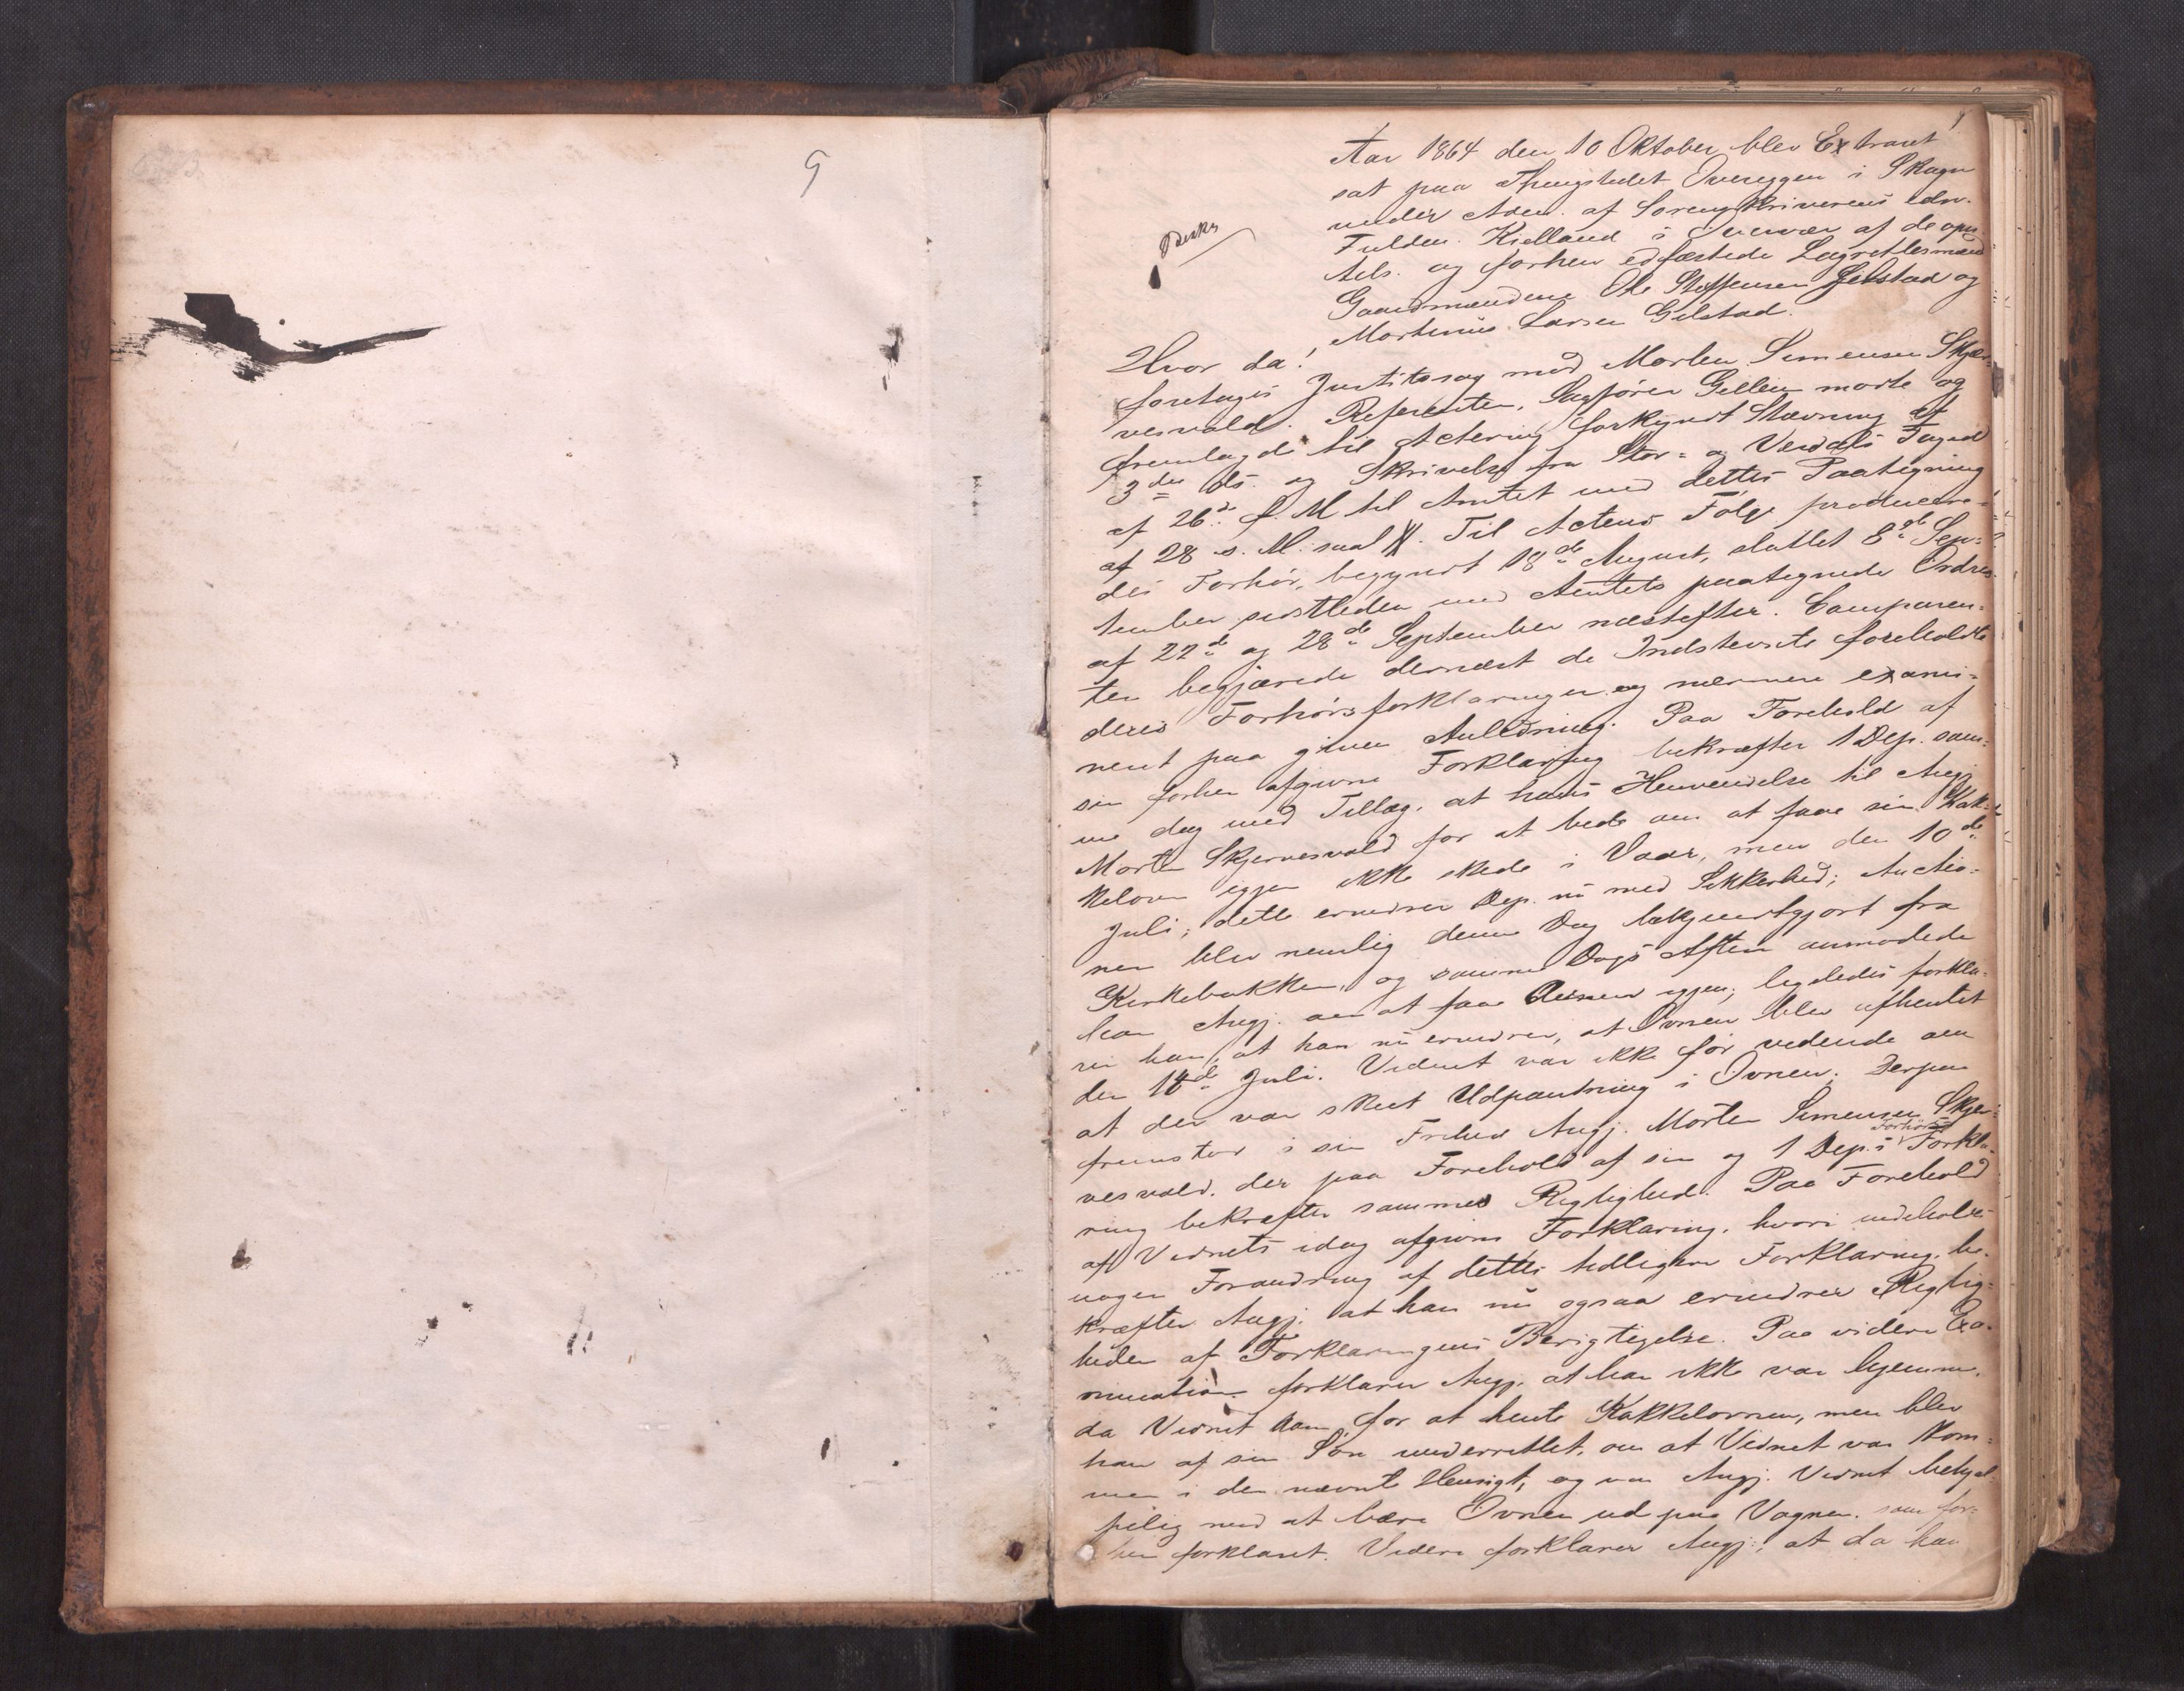 9
Aar 1864 den 10 Oktober blev Extraret
sat paa Thingstedet Overeggen i Skogn
under Adm. af Sorenskriverens edsv.
Fuldm. Kielland i Overvær af de opn.
Tels. og forhen edfæstede Lagrettesmænd
Gaardmændene Ole Steffensen Gilstad og
Martinus Larsen Gilstad.
Beskr
Hvor da!
foretages Justitssag mod Morten Simensen Skjer-
vesvold. Referenten, Sagfører Gellein mødte og
fremlagde til Actering forkyndt Stævning af
3die ds. og Skrivelse fra Stør- og Værdals Fogd
af 26de f. M til Amtet med dettes Paategning
af 28 s. M. saal. Til Actens Følge producere-
des Forhør, begyndt 18de August, sluttet 8de Sep-
tember sidstleden med Amtets paategnede Ordres
af 22de og 28de September næstefter. Comparen-
ten begjærede dernæst de Indstevnte foreholdte
deres Forhørsforklaringer og nærmere exami-
neret paa given Anledning. Paa Forehold af
sin forhen afgivne Forklaring bekræfter 1 Dep. sam-
me dog med Tillæg, at hans Henvendelse til Angj.
Morten Skjervesvold for at bede om at faae sin Kak-
kelovn igjen ikke skede i Vaar, men den 10de
Juli; dette erindrer Dep. nu med Sikkerhed; Auctio-
nen blev nemlig denne Dag bekjendtgjort fra
Kirkebakken, og samme Dags Aften anmodede
han Angj. om at faae Ovnen igjen; ligeledes forkla-
rer han, at han nu erindrer, at Ovnen blev afhentet
den 18de Juli. Vidnet var ikke før vidende om
at der var skeet Udpantning i Ovnen. Derpaa
fremstod i sin Frihed Angj. Morten Simensen Skjer-
vesvold, der paa Forehold af sin og 1 Dep.s Forhørs Forkla-
ring bekræfter sammes Rigtighed. Paa Forehold
af Vidnets idag afgivne Forklaring, hvori indeholdes
nogen Forandring af dettes tidligere Forklaring, be-
kræfter Angj. at han nu ogsaa erindrer Rigtig-
heden af Forklaringens Berigtigelse. Paa videre Exa-
mination forklarer Angj. at han ikke var hjemme,
da Vidnet kom for at hente Kakkelovnen, men blev
han af sin Søn underrettet, om at Vidnet var kom-
men i den nævnte Hensigt, og var Angj. Vidnet behjel-
pelig med at bære Ovnen ud paa Vognen, som for-
hen forklaret. Videre forklarer Angj., at da han